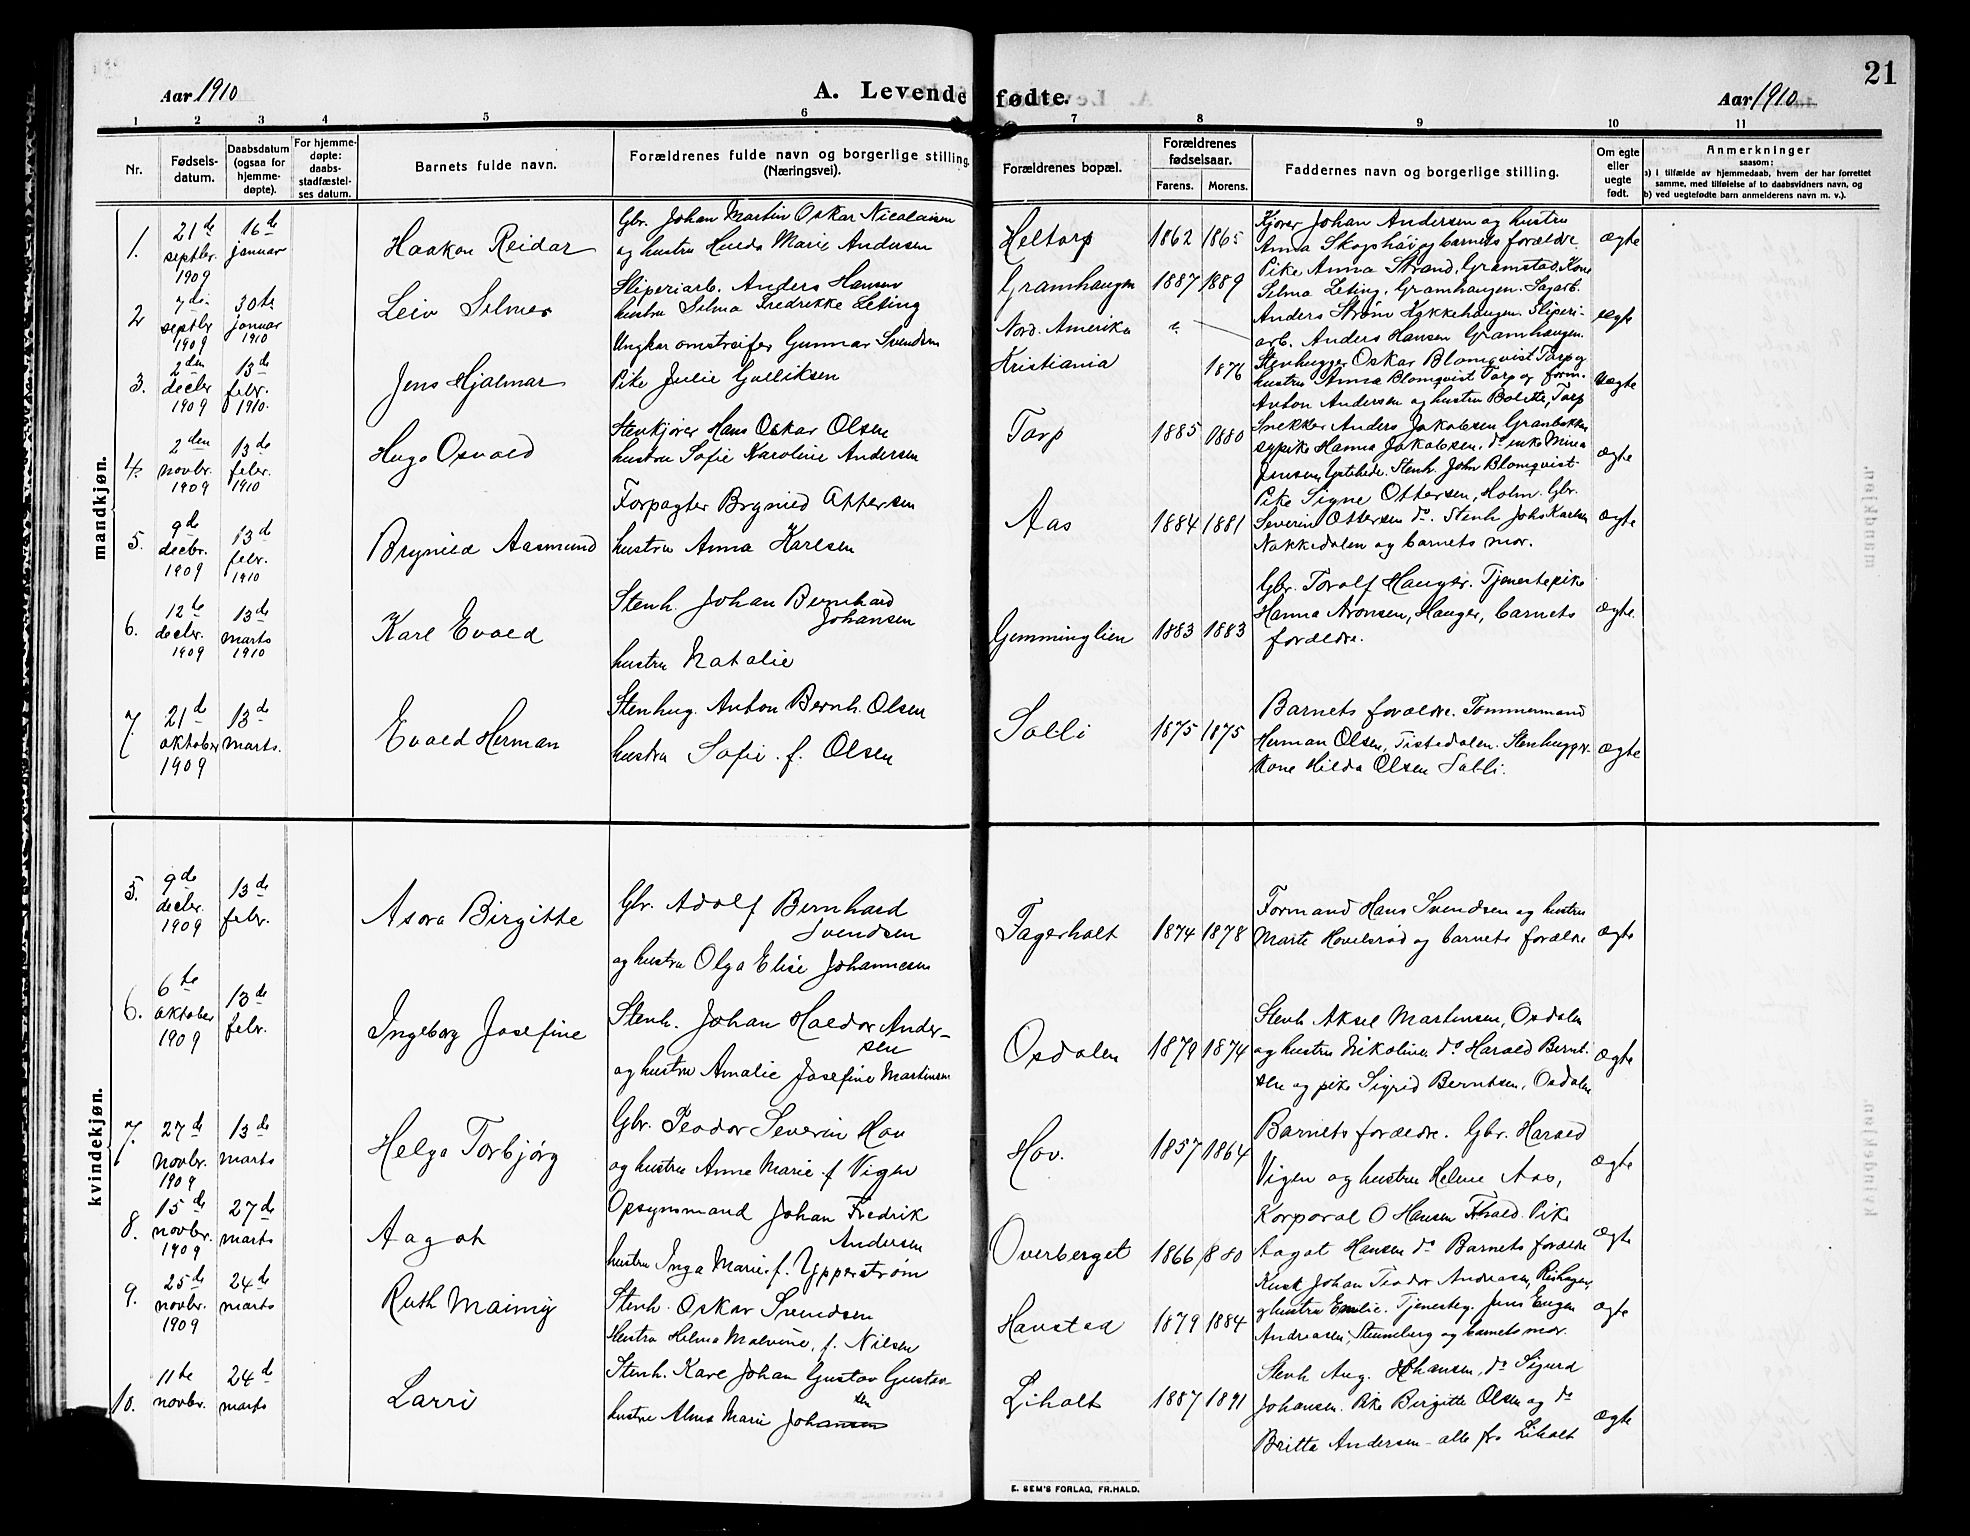 21
Aar 1910
A. Levende fødte.
Aar 1910
1 2 3 4 5 6 7 8 9 10 11
Nr.
Fødsels-
datum.
Daabsdatum
(ogsaa for
hjemme-
døpte).
For hjemme-
døpte:
daabs-
stadfæstel-
ses datum.
Barnets fulde navn.
Forældrenes fulde navn og borgerlige stilling.
(Næringsvei).
Forældrenes bopæl.
Forældrenes
fødselsaar.
Farens. Morens.
Faddernes navn og borgerlige stilling.
Om egte
eller
uegte
født.
Anmerkninger
saasom:
a) i tilfælde av hjemmedaab, hvem der har forrettet
samme, med tilføielse af to daabsvidners navn, og
b) ved uegtefødte barn anmelderens navn m. v.).
mandkjøn.
1.
21de
septbr.
1909
16de
januar
Haakon Reidar
Gbr. Johan Martin Oskar Nicolaisen
og hustru Hulda Marie Andersen
Heltorp
1862 1865
Kjører Johan Andersen og hustru
Anna Skogshøi og barnets forældre
ægte
2
7de
septbr
1909
30te
januar
1910
Leiv Selmer
Sliperiarb. Anders Hansen
hustru Selma Fredrikke Leting
Gramhaugen
1887 1889
Pike Anna Strand, Gramstad, Kone
Selma Leting, Gramhaugen. Sagarb.
Anders Strøm Hakkehaugen. Sliperi-
arb. Anders Hansen Gramhaugen.
ægte
3.
2den
decbr
1909
13de
febr.
1910.
Jens Hjalmar
Ungkar omstreifer Gunnar Svendsen
Pike Julie Gulliksen
Nord. Amerika
Kristiania
1876
Stenhugger Oskar Blomqvist Torp og
hustru Anna Blomqvist Torp og form.
Anton Andersen og hustru Bolette, Torp
uægte
4.
2den
novbr.
1909
13de
febr.
1910
Hugo Osvald
Stenkjører Hans Oskar Olsen
hustru Sofie Karoline Andersen
Torp
1885 1880
Snekker Anders Jakobsen Granbakken
sypike Hanna Jakobsen, do enke Mina
Jensen, Stenh. John Blomqvist
ægte
5.
9de
decbr.
1909
13de
febr.
1910
Brynild Aasmund
Forpagter Brynild Ottersen
hustru Anna Karlsen
Aas
1884 1881
Pike Signe Ottersen, Holm. Gbr.
Severin Ottersen do. Stenh Johs Karlsen
Nakkedalen og barnets mor.
ægte
6.
12te
decbr.
1909
13de
marts
1910
Karl Evald
Stenh. Johan Bernhard
Johansen
hustru Natalie
Gemminglien
1883 1883
Gbr. Torolf Hauger. Tjenestepike
Hanna Aronsen, Hauger, barnets
forældre.
ægte.
7.
21de
oktober
1909
13de
marts.
Evald Herman
Stenhug. Anton Bernh. Olsen
hustru Sofie f. Olsen
Solli
1875 1875
Barnets forældre. Tømmermand
Herman Olsen, Tistedalen. Stenhugger.
Kone Hilda Olsen Solli.
ægte
kvindekjøn.
5.
9de
decbr.
1909
13de
febr.
Asora Birgitte
Gbr. Adolf Bernhard
Svendsen
og hustru Olga Elise Johannesen
Fagerholt
1874 1878
Formand Hans Svendsen og hustru
Marte Hovelsrød og barnets forældre
ægte
6.
6te
oktober
1909
13de
febr.
Ingeborg Josefine
Stenh. Johan Haldor Ander-
sen
og hustru Amalie Josefine Martinsen
Osdalen
1879 1874
Stenh Aksel Martinsen, Osdalen
og hustru Nikoline, do Harald Bernt-
sen og pike Sigrid Berntsen, Osdalen
ægte
7.
27de
novbr.
1909
13de
marts
Helga Torbjørg
Gbr. Peodor Severin Hov
og hustru Anna Marie f. Vigen
Hov.
1857 1864
Barnets forældre. Gbr. Harald
Vigen og hustru Helene Aas,
ægte
8.
15de
novbr.
1909
27de
marts
Aagot
Opsynsmand Johan Fredrik
Andersen
hustru Inga Marie f. Ypperstrøm
Overberget
1866 1880
Korporal O Hansen Fr.hald. Pike
Aagot Hansen do Barnets forældre
ægte
9.
25de
novbr.
1909
24de
marts
Ruth Maimy
Stenh. Oskar Svendsen
Hustru Helma Malvine, f. Nilsen
Havstad
1879 1884
Kusk Johan Teodor Andreasen, Rishagen,
og hustru Emilie. Tjenesteg. Jens Eugen
Andreasen, Stumberg og barnets mor.
ægte
10.
11te
novbr.
24de
marts
Larri
Stenh. Karl Johan Gustav Gustav-
sen
hustru Alma Marie Johansen
Liholt
1887 1891
Stenh Aug. Johansen, do Sigurd
Johansen. Pike Birgitte Olsen og do
Britta Andersen - alle fra Liholt
ægte
E. SEM'S FORLAG, FR.HALD.